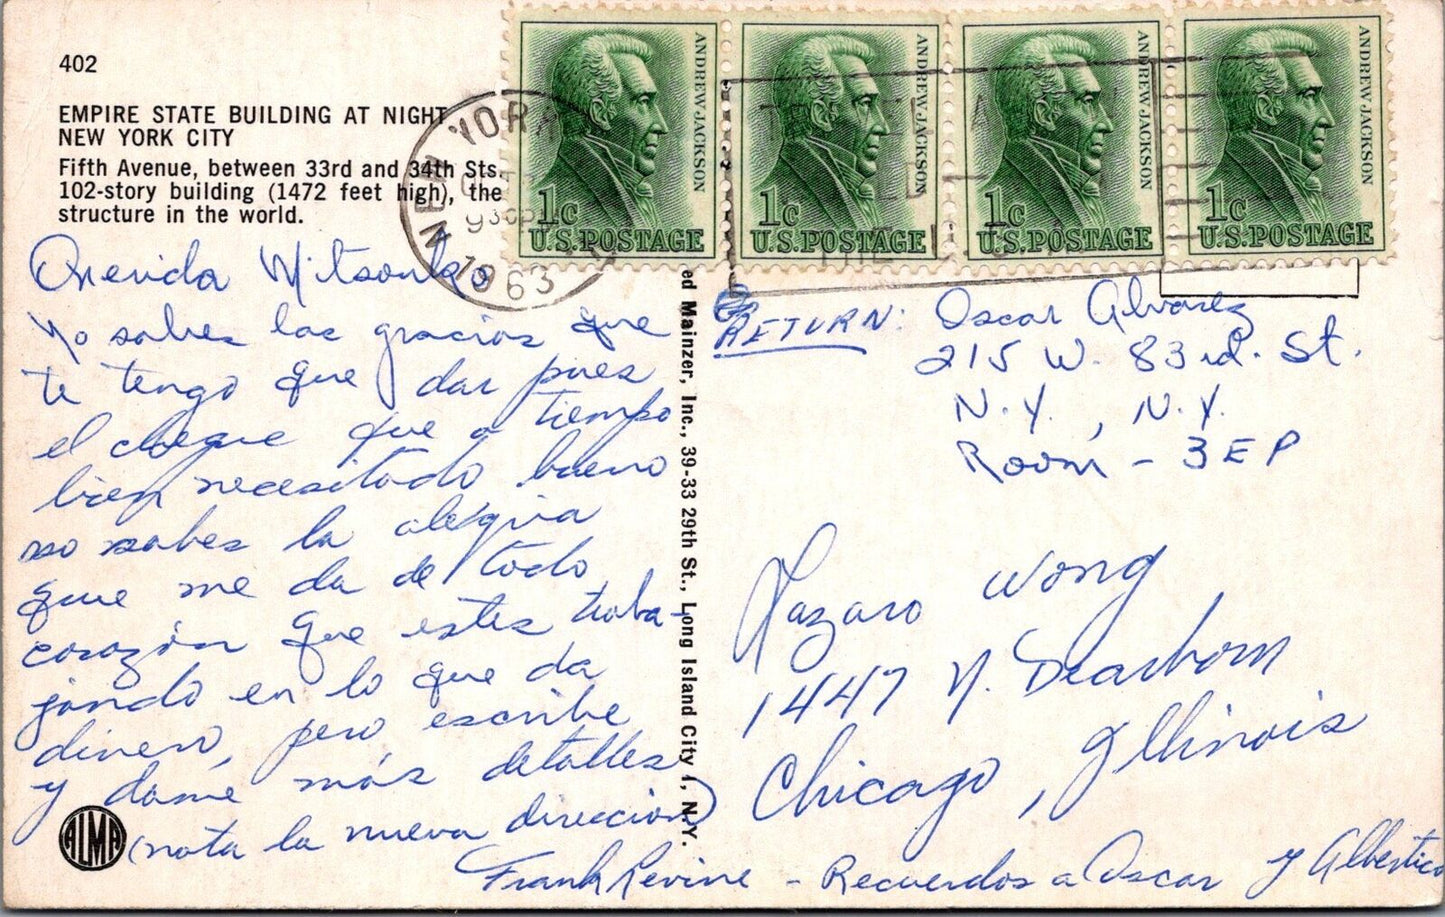 402
EMPIRE STATE BUILDING AT NIGHT
NEW YORK CITY
Fifth Avenue, between 33rd and 34th Sts.
102-story building (1472 feet high), the
structure in the world.
Querida Mitsouko
Yo sabes las gracias que
te tengo que dar pues
el cheque que a tiempo
bien necesitado bueno
no sabes la alegria
que me da de todo
corazón que estes traba-
jando en lo que da
dinero, pero escribe
y dame más detalles
(nota la nueva direccion)
Frank Levine - Recuerdos a Oscar y Albertico
ALMA
ed Mainzer, Inc., 39-33 29th St., Long Island City 1, N.Y.
NEW YORK
1963
ANDREW JACKSON
1c
U.S. POSTAGE
ANDREW JACKSON
1c
U.S. POSTAGE
ANDREW JACKSON
1c
U.S. POSTAGE
ANDREW JACKSON
1c
U.S. POSTAGE
RETURN: Oscar Alvarez
215 W. 83rd. St.
N.Y., N.Y.
Room - 3EP
Lazaro Wong
1447 N. Dearborn
Chicago, Illinois